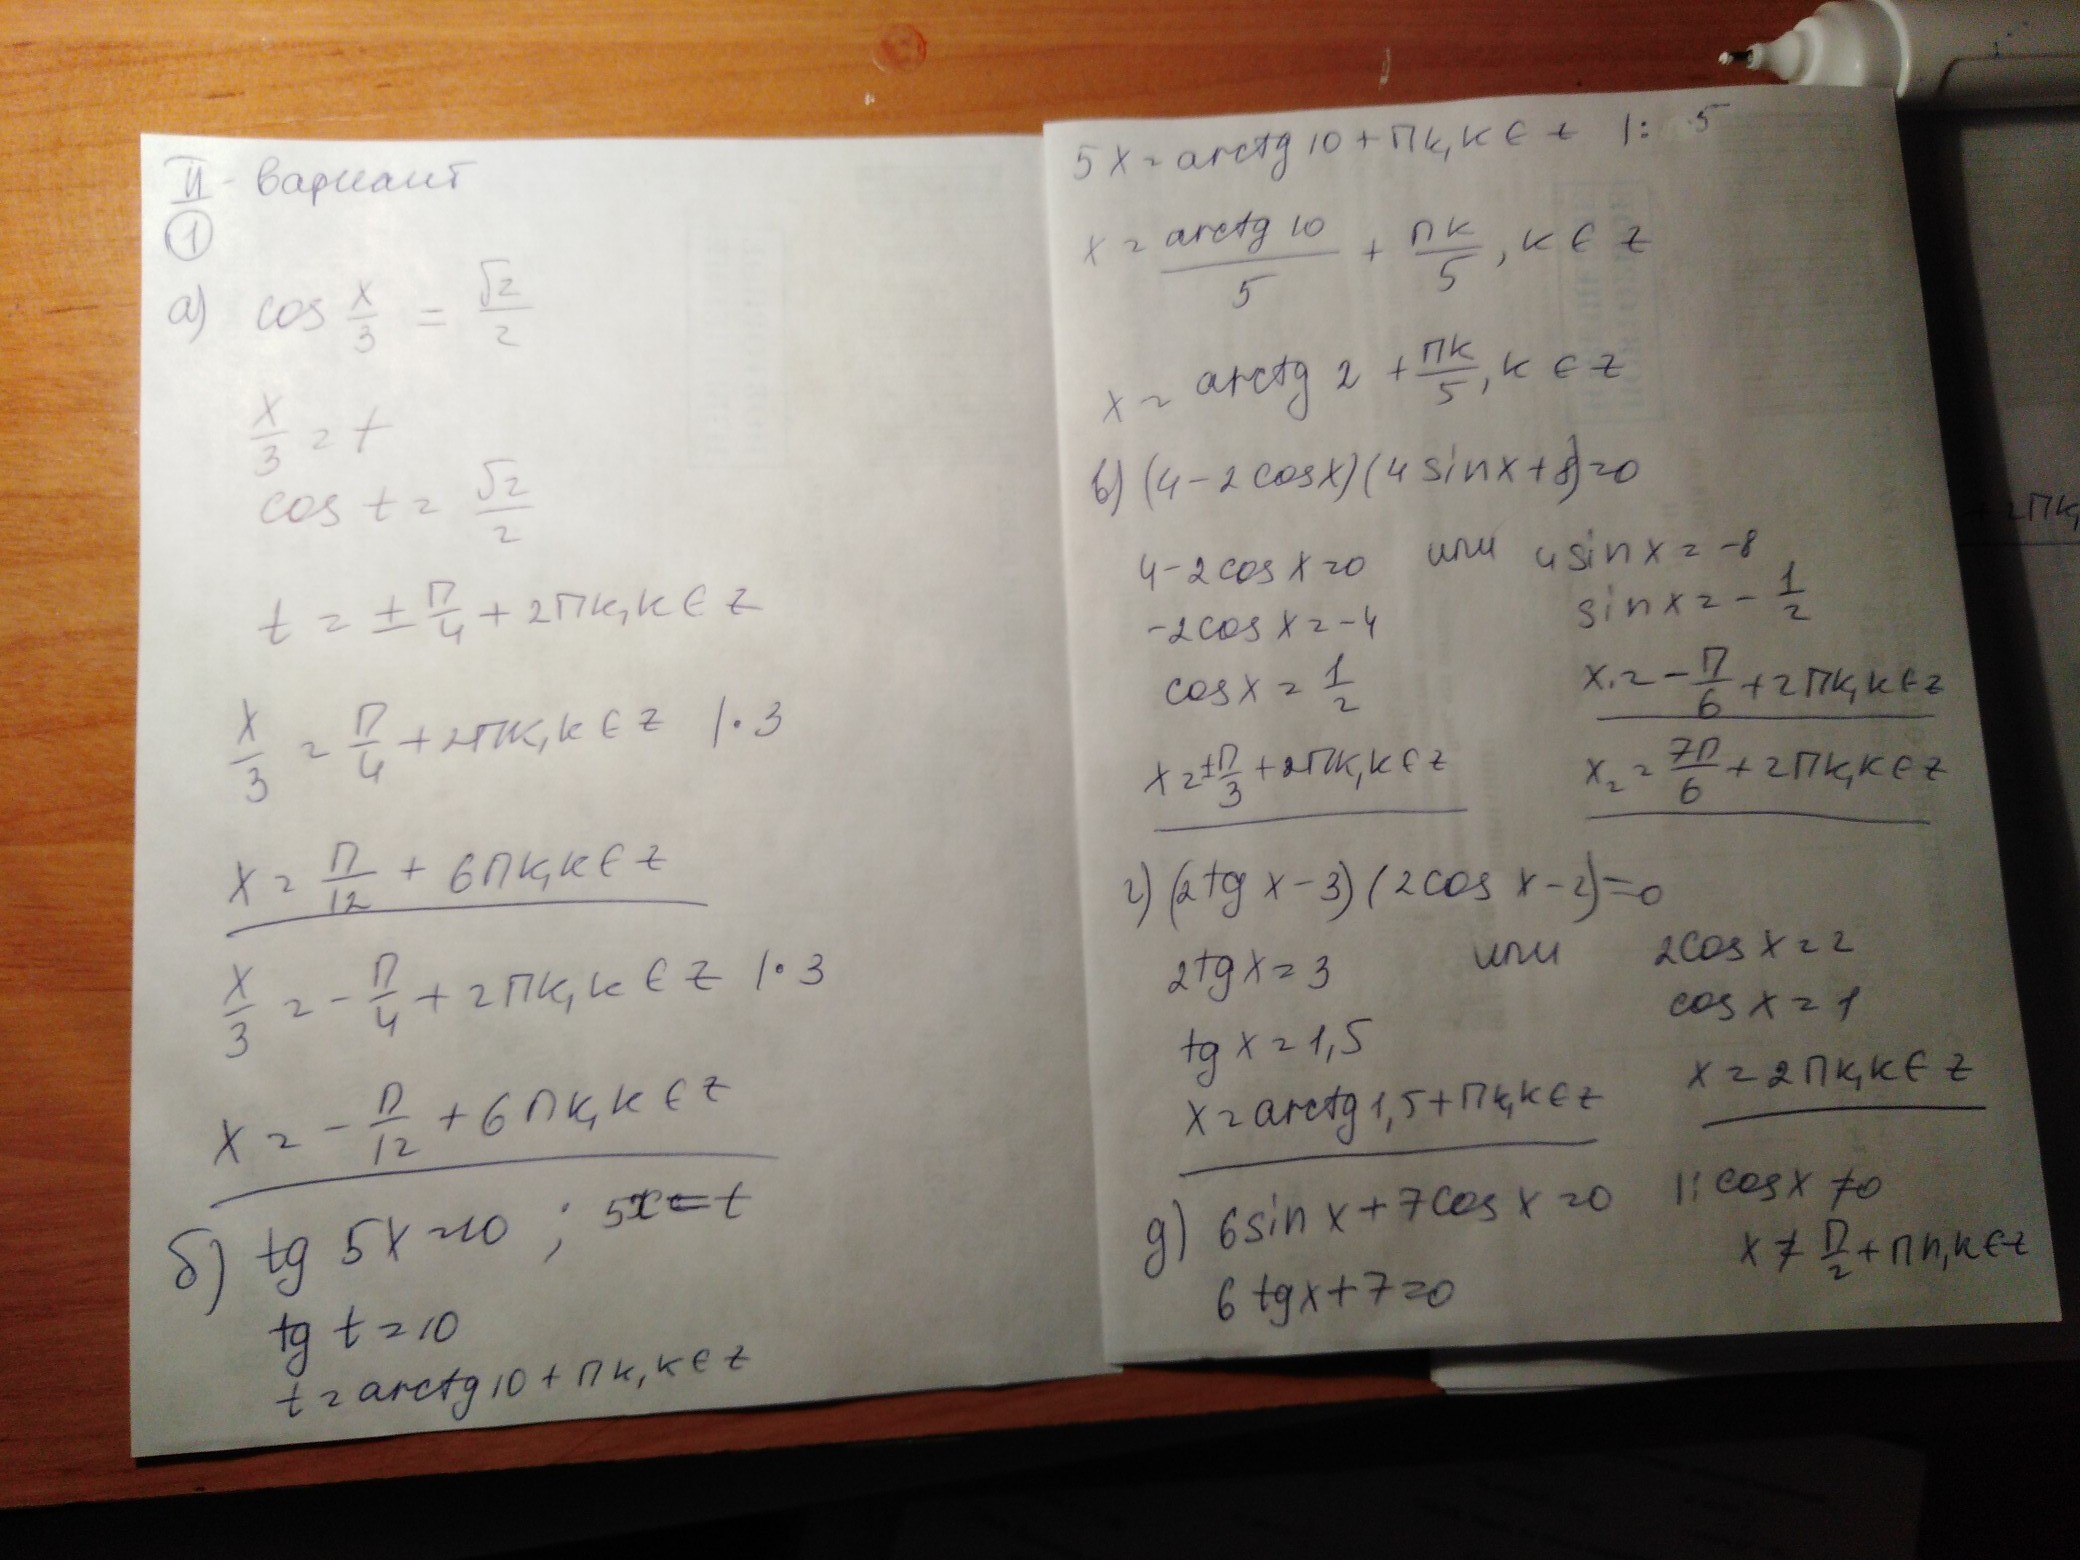 II - вариант
1
а) cos x/3 = √2/2
x/3 = t
cos t = √2/2
t = ± П/4 + 2Пk, k ∈ z
x/3 = П/4 + 2Пk, k ∈ z | · 3
x = П/12 + 6Пk, k ∈ z
x/3 = - П/4 + 2Пk, k ∈ z | · 3
x = - П/12 + 6Пk, k ∈ z
б) tg 5x = 10 ; 5x = t
tg t = 10
t = arctg 10 + Пk, k ∈ z
5x = arctg 10 + Пk, k ∈ z | : 5
x = arctg 10/5 + Пk/5, k ∈ z
x = arctg 2 + Пk/5, k ∈ z
в) (4 - 2cosx)(4sinx + 8) = 0
4 - 2cos x = 0 или 4sinx = -8
-2cos x = -4 sinx = - 1/2
cosx = 1/2 x₁ = - П/6 + 2Пk, k ∈ z
x = ± П/3 + 2Пk, k ∈ z x₂ = 7П/6 + 2Пk, k ∈ z
г) (2tg x - 3)(2cos x - 2) = 0
2tgx = 3 или 2cosx = 2
tg x = 1,5 cosx = 1
x = arctg 1,5 + Пk, k ∈ z x = 2Пk, k ∈ z
д) 6sinx + 7cosx = 0 | : cosx ≠ 0
x ≠ П/2 + Пn, k ∈ z
6tgx + 7 = 0
+ 2Пk,